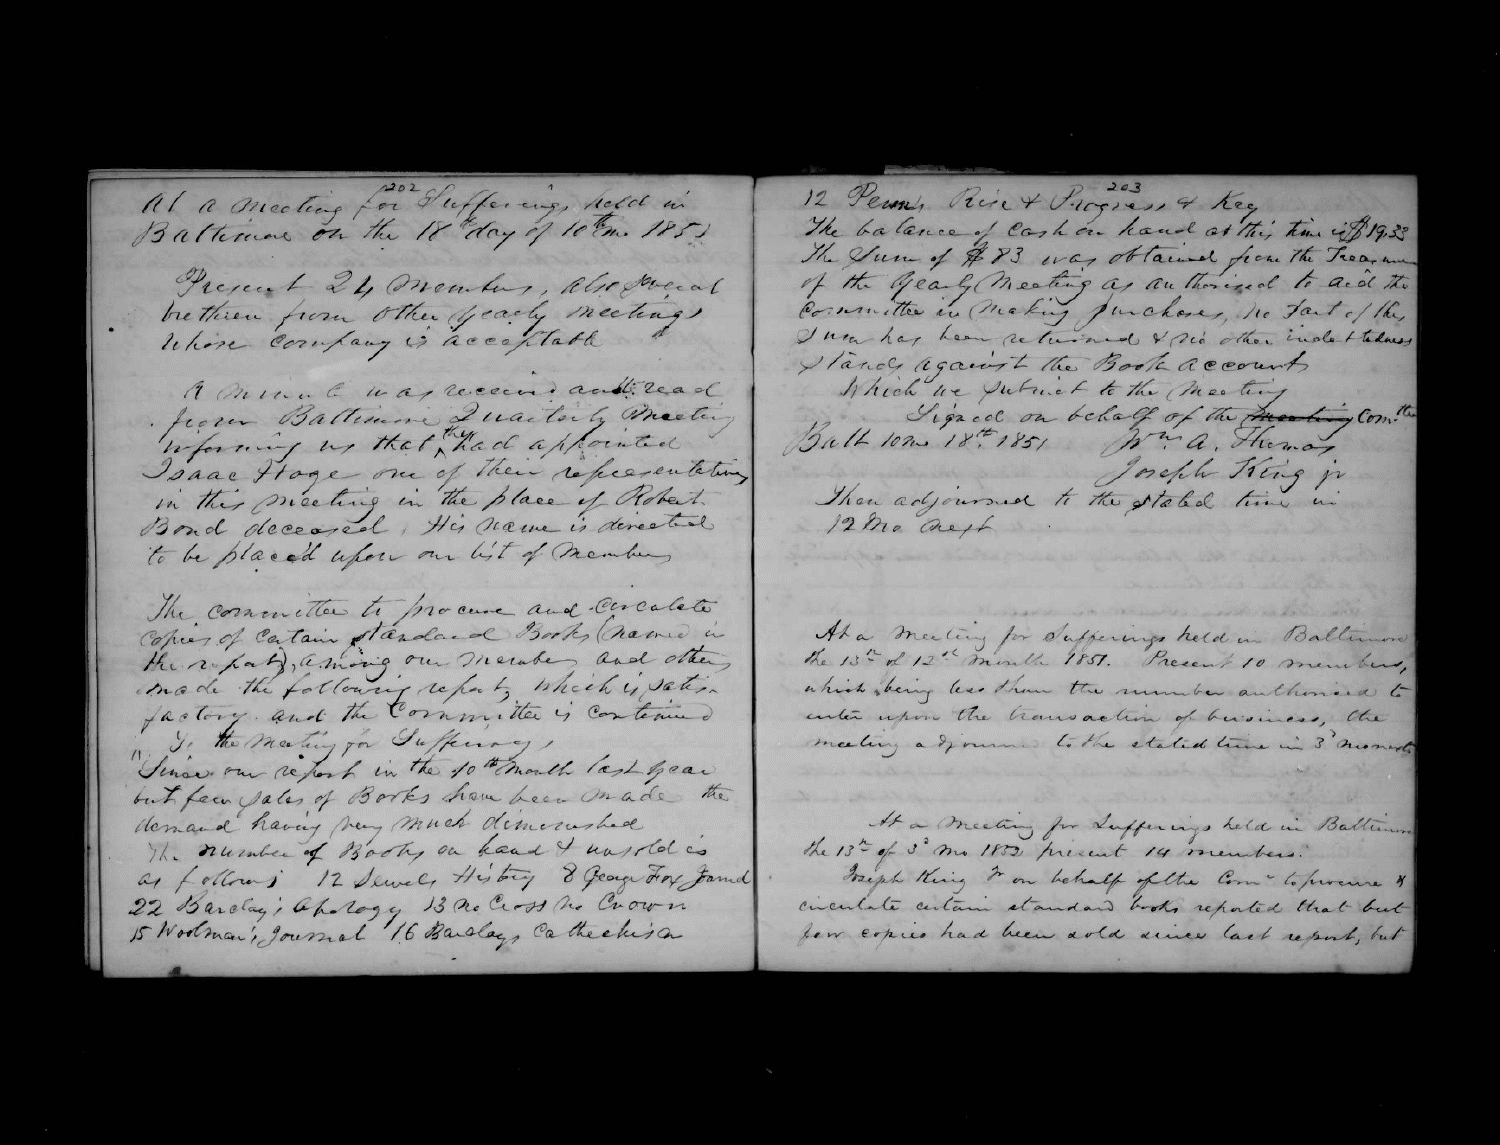 202
At a meeting for Sufferings held in
Baltimore on the 18th day of 10th mo 1851
Present 24 members, also several
brethren from other Yearly meetings
whose company is acceptable
A minute was received and read
from Baltimore Quarterly Meeting
informing us that they had appointed
Isaac Hoge one of their representatives
in this meeting in the place of Robert
Bond deceased. His name is directed
to be placed upon our list of members
The committee to procure and circulate
copies of certain standard Books (named in
the report), among our members and others
made the following report, which is satis-
factory and the Committee is continued
To the Meeting for Sufferings
"Since our report in the 10th month last year
but few sales of Books have been made the
demand having very much diminished
The number of Books on hand & unsold is
as follows 12 Sewels History 8 George Fox Journal
22 Barclay's Apology 13 no Cross no Crown
15 Woolman's Journal 16 Barclays Catechism
203
12 Penn's Rise & Progress & Key
The balance of Cash on hand at this time is $19.33
The Sum of $83 was obtained from the Treasurer
of the Yearly Meeting as authorised to aid the
committee in making purchases, no part of this
Sum has been returned & no other indebtedness
stands against the Book accounts
Which we submit to the Meeting
Signed on behalf of the meeting Com.tee
Balt 10 mo 18th 1851 Wm. A. Thomas
Joseph King jr
Then adjourned to the stated time in
12 Mo next
At a Meeting for Sufferings held in Baltimore
the 13th of 12th month 1851. Present 10 members,
which being less than the number authorised to
enter upon the transaction of business, the
meeting adjourned to the stated time in 3d month
At a Meeting for Sufferings held in Baltimore
the 13th of 3d mo 1852 present 14 members.
Joseph King Jr on behalf of the Come to procure &
circulate certain standard books reported that but
few copies had been sold since last report, but